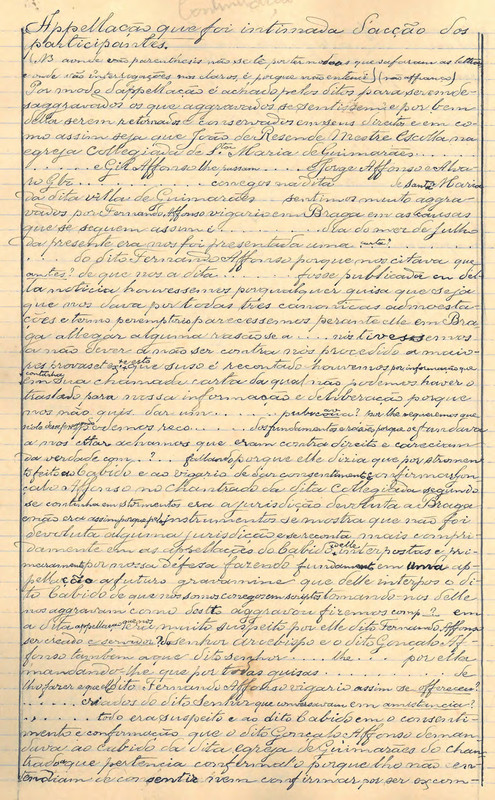 Appellação que foi intimada d'acção dos
participantes.
(NB aonde vão parenthesis não se le por ter nodoas que sufocam as lettras
e onde vão interrogações nos claros, é porque não entendi) (não affianço)
Por modo d'appellação é achado pelos ditos para serem de-
sagravados os que aggravados se sentissem e por bem
della serem retirados e conservados em seus direitos e em co-
mo assim seja que João de Resende Mestre Escolla na
egreja Collegiada de Sta Maria de Guimarães . . . . .
. . . . . e Gil Affonso . . . . . Jorge Affonso e Alva-
ro . . . . . conegos na dita . . . . . de Santa Maria
da dita villa de Guimarães sentimos muito aggra-
vados por Fernando Affonso vigario em Braga em as causas
que se seguem assim é . . . . . dia do mez de Julho
da presente era nos foi presentada uma carta? . . . .
. . . . do dito Fernando Affonso porque nos citava que
antes? de que nos a dita . . . . . fosse publicada em del-
la noticia houvessemos por qualquer guisa que seja
que nos dava por todas tres canonicas admoesta-
ções e termo peremptorio parecessemos perante elle em Bra-
ga allegar alguma rasão se a . . . . nós tivessemos
a não dever de não ser contra nós procedido a maio-
res provas e que suso é recontado houvemos por informação que
em sua chamada carta da qual não podemos haver o
traslado para nossa informação e deliberação porque
nos não quis dar um . . . . . publicação? por lhe requeremos que
podemos reco . . . . . dos fundamentos e rasões porque se fundava
a nos citar achamos que eram contra direito e careciam
da verdade com . . ? fallando porque elle dizia que por stromen-
tos feito ao Cabido e ao vigario de dar consentimento e confirmar Gon-
çalo Affonso no Chantrado da dita Collegiada segundo
se continha em stormentos era a jurisdição devoluta a Braga
e não era assim porque pelos instrumentos se mostra que não foi
devoluta alguma jurisdicção e ser conta mais compri-
damente em as appellações do Cabido d'elle interpostas e pri-
meiramente por nossa defesa fazendo fundamento em uma ap-
pellação a futuro gravamine que delle interpos o di-
to Cabido de que nós somos conegos em scripto tomando-nos delle
nos aggravam como d'este aggravou firemos comp? em
a dita appellação que nos era muito suspeito por elle dito Fernando Affonso
ser creado e servidor? do senhor arcebispo e o dito Gonçalo Af-
fonso tambem a que dito senhor . . . lhe . . . por ella
mandando-lhe que por todas guisas . . . . . de
lho fazer e aquelle dito Fernando Affonso vigario assim se offereceo?
. . . . . creados do dito Senhor que conversavam em amistancia?
. . . . . todo era suspeito e ao dito Cabido em o consenti-
mento e confirmação que o dito Gonçalo Affonso deman-
dava ao Cabido da dita egreja de Guimarães do chan-
trado que pertencia confirmal-o porque lho não en-
tendiam de consentir nem confirmar por ser excom-